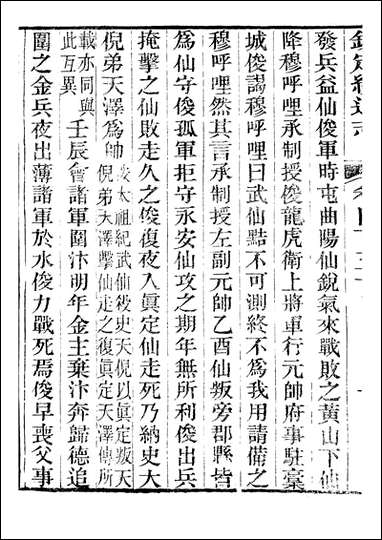 欽定續通志
發兵益仙俊軍時屯曲陽仙銳氣來戰敗之黃山下仙
降穆呼哩承制授俊龍虎衛上將軍行元帥府事駐藁
城俊謁穆呼哩曰武仙黠不可測終不為我用請備之
穆呼哩然其言承制授左副元帥乙酉仙叛旁郡縣皆
為仙守俊孤軍拒守永安仙攻之期年無所利俊出兵
掩擊之仙敗走久之俊復夜入真定仙走死乃納史大
倪弟天澤為帥
按太祖紀武仙殺史天倪以真定叛天
倪弟天澤擊仙走之復真定天澤傳所
載亦同與
此互異
壬辰會諸軍圍汴明年金主棄汴奔歸德追
圍之金兵夜出薄諸軍於水俊力戰死焉俊早喪父事